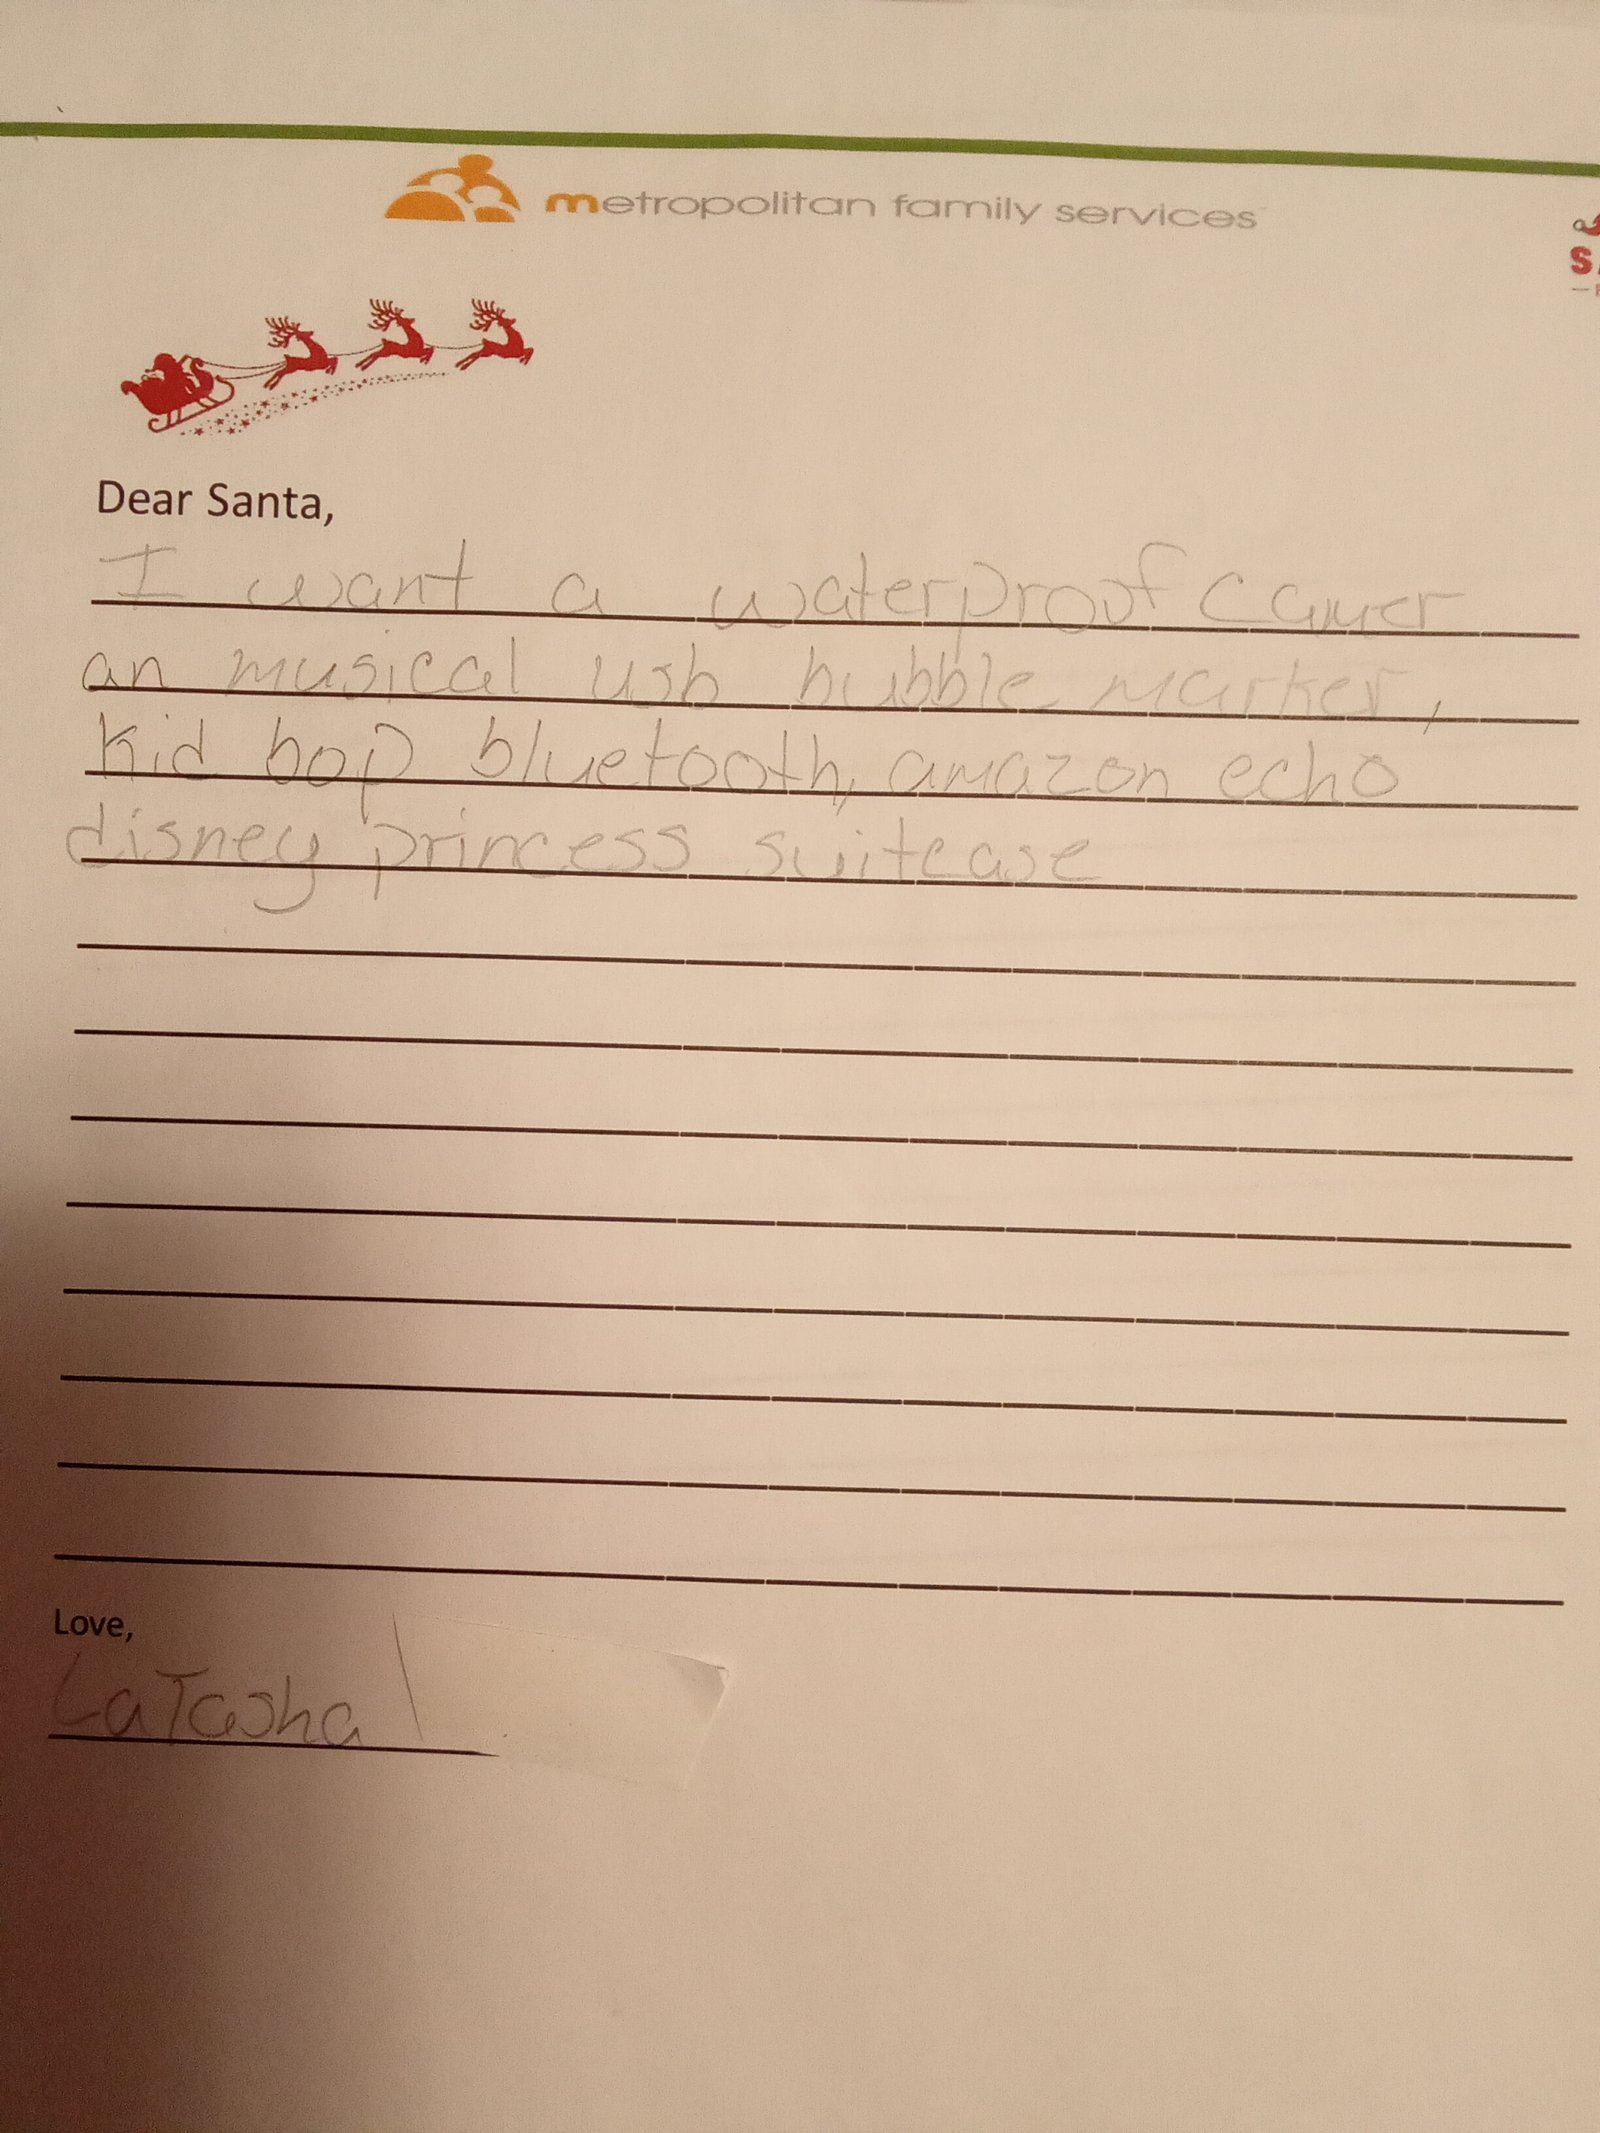 metropolitan family services
Dear Santa,
I want a waterproof camer
an musical usb bubble marker,
Kid bop bluetooth, amazon echo
disney princess suitcase
Love,
LaTasha